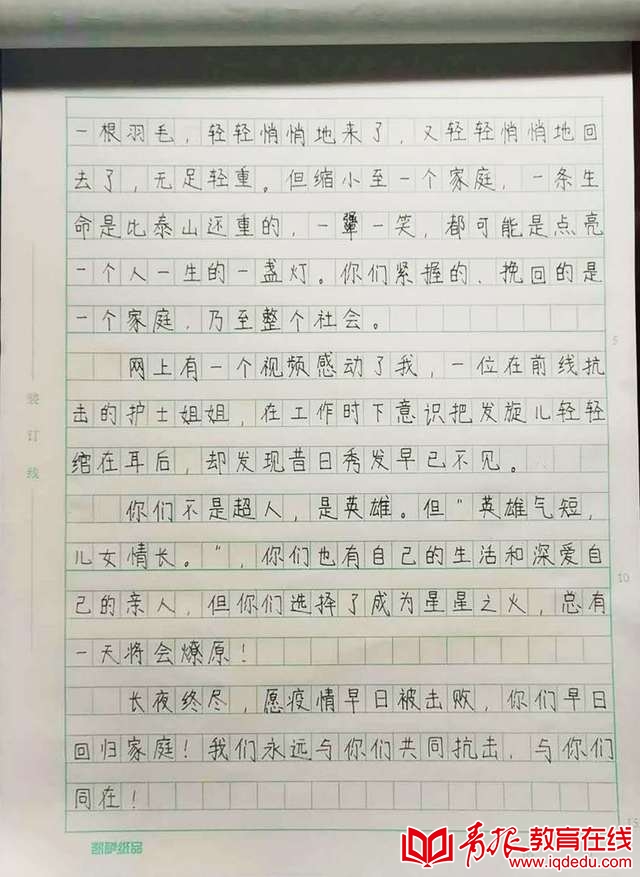 一根羽毛，轻轻悄悄地来了，又轻轻悄悄地回
去了，无足轻重。但缩小至一个家庭，一条生
命是比泰山还重的，一颦一笑，都可能是点亮
一个人一生的一盏灯。你们紧握的、挽回的是
一个家庭，乃至整个社会。
网上有一个视频感动了我，一位在前线抗
击的护士姐姐，在工作时下意识把发旋儿轻轻
绾在耳后，却发现昔日秀发早已不见。
你们不是超人，是英雄。但“英雄气短，
儿女情长。”，你们也有自己的生活和深爱自
己的亲人，但你们选择了成为星星之火，总有
一天将会燎原！
长夜终尽，愿疫情早日被击败，你们早日
回归家庭！我们永远与你们共同抗击，与你们
同在！
装
订
线
5
10
15
青报教育在线
www.iqdedu.com